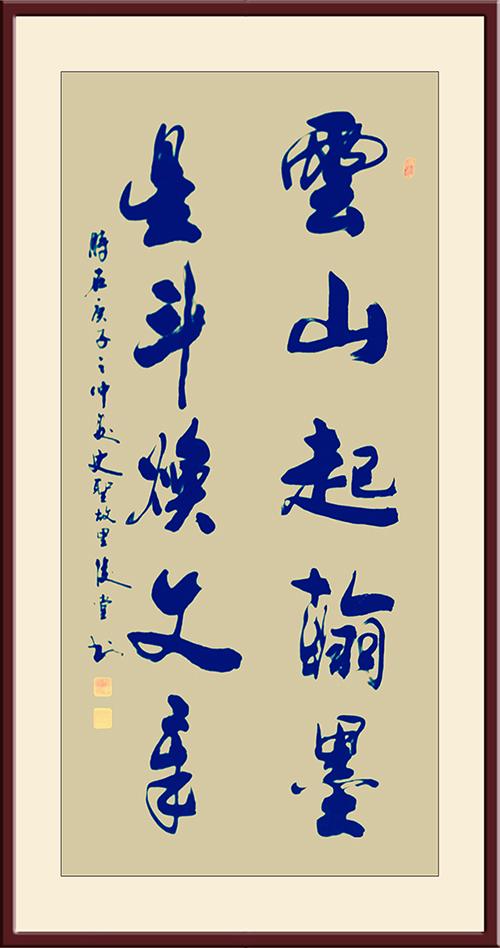 雲山起翰墨
星斗煥文章
時在庚子之仲夏史聖故里俊堂书